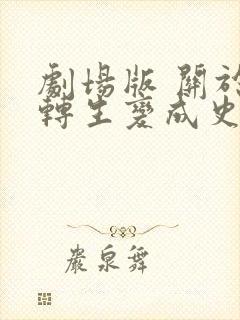 劇場版 關於
轉生變成史
嚴泉舞